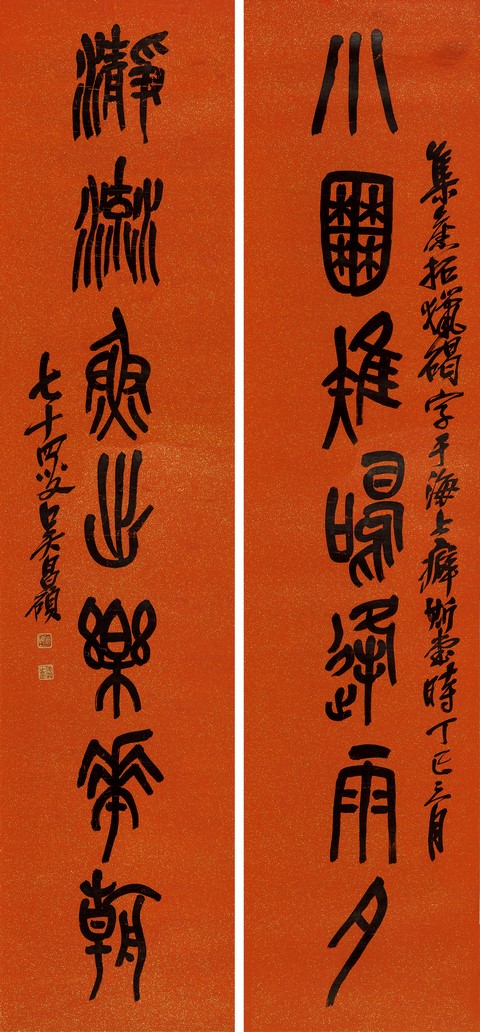 集舊拓獵碣字于海上癖斯堂時丁巳三月
小囿雉鳴逢雨夕
瀞流魚出樂華朝
七十四叟吳昌碩